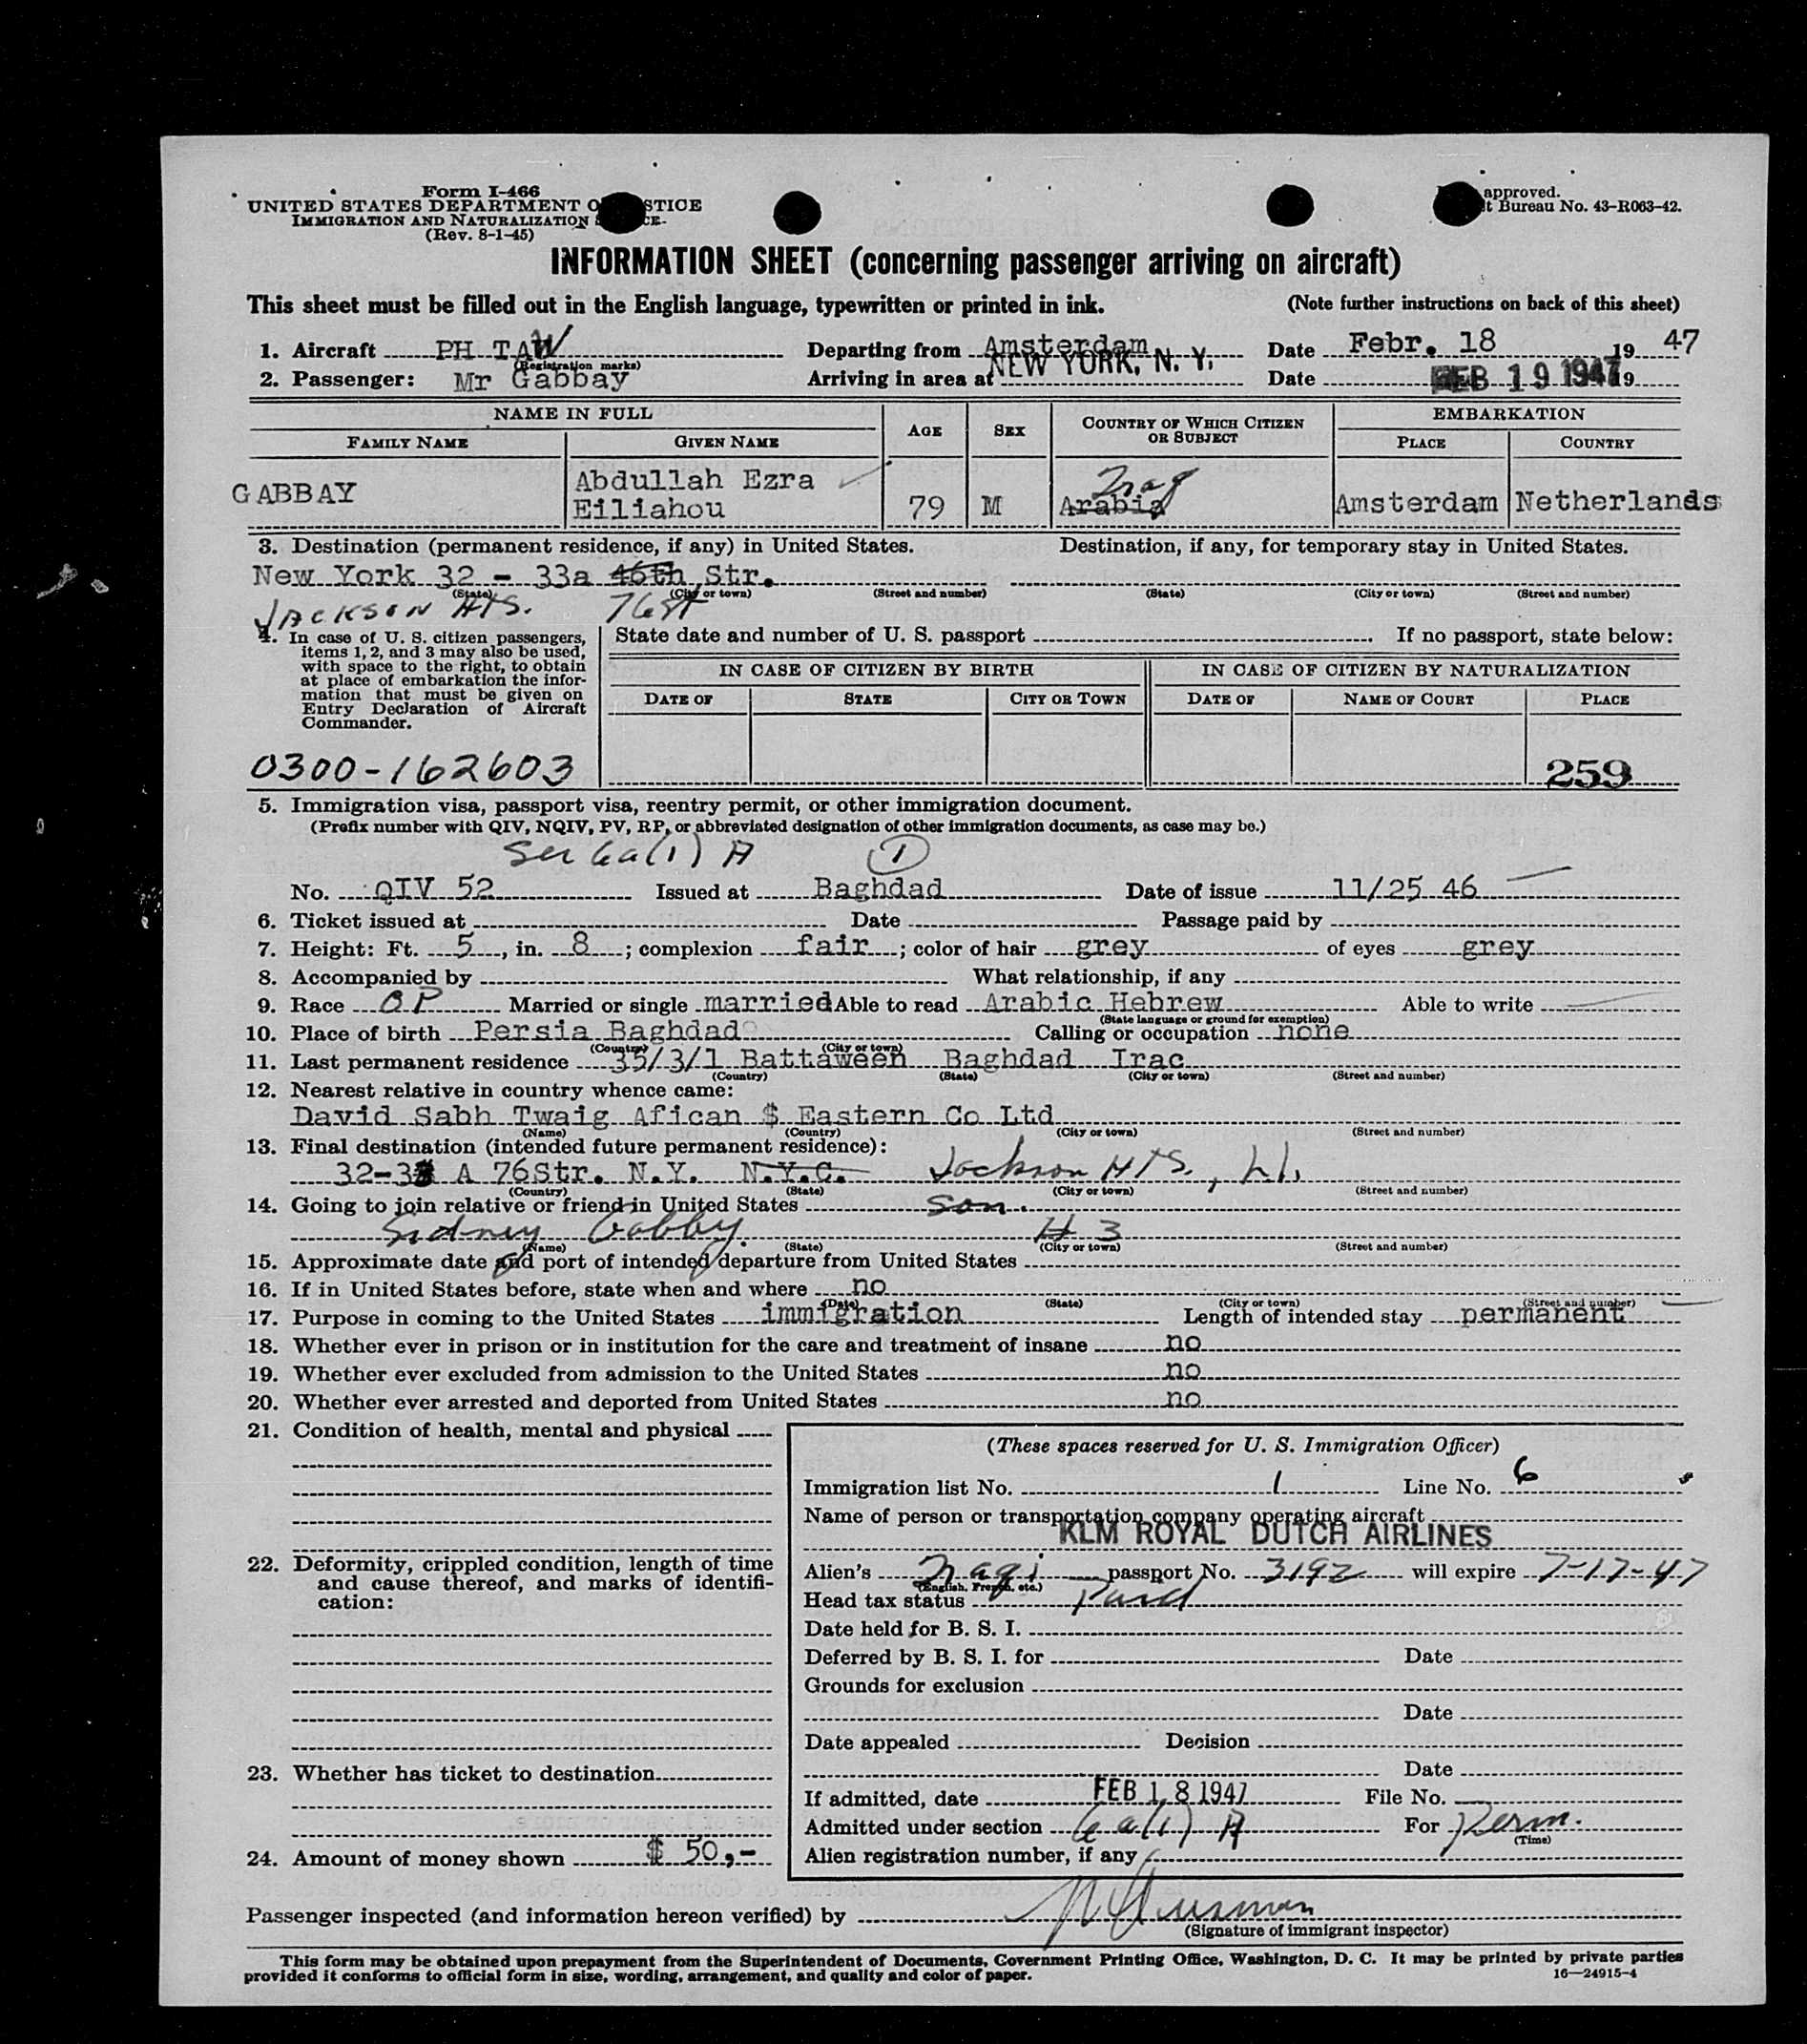 Form I-466
UNITED STATES DEPARTMENT O STICE
IMMIGRATION AND NATURALIZATION S CE
(Rev. 8-1-45)
approved.
t Bureau No. 43-R063-42.
INFORMATION SHEET (concerning passenger arriving on aircraft)
This sheet must be filled out in the English language, typewritten or printed in ink. (Note further instructions on back of this sheet)
1. Aircraft PH TAW Departing from Amsterdam Date Febr. 18 19 47
(Registration marks)
2. Passenger: Mr Gabbay Arriving in area at NEW YORK, N. Y. Date FEB 19 1947 19
NAME IN FULL AGE SEX COUNTRY OF WHICH CITIZEN OR SUBJECT EMBARKATION
FAMILY NAME GIVEN NAME PLACE COUNTRY
GABBAY Abdullah Ezra Eiliahou 79 M Arabia Iraq Amsterdam Netherlands
3. Destination (permanent residence, if any) in United States. Destination, if any, for temporary stay in United States.
New York 32 - 33a 46th Str.
(State) (City or town) (Street and number) (State) (City or town) (Street and number)
JACKSON HTS. 76st
4. In case of U. S. citizen passengers,
items 1, 2, and 3 may also be used,
with space to the right, to obtain
at place of embarkation the infor-
mation that must be given on
Entry Declaration of Aircraft
Commander.
State date and number of U. S. passport If no passport, state below:
IN CASE OF CITIZEN BY BIRTH IN CASE OF CITIZEN BY NATURALIZATION
DATE OF STATE CITY OR TOWN DATE OF NAME OF COURT PLACE
0300-162603 259
5. Immigration visa, passport visa, reentry permit, or other immigration document.
(Prefix number with QIV, NQIV, PV, RP, or abbreviated designation of other immigration documents, as case may be.)
6a(1) A 1
No. QIV 52 Issued at Baghdad Date of issue 11/25 46
6. Ticket issued at Date Passage paid by
7. Height: Ft. 5, in. 8; complexion fair; color of hair grey of eyes grey
8. Accompanied by What relationship, if any
9. Race OP Married or single married Able to read Arabic Hebrew Able to write
(State language or ground for exemption)
10. Place of birth Persia Baghdad Calling or occupation none
(Country) (City or town)
11. Last permanent residence 35/3/1 Battaween Baghdad Irac
(Country) (State) (City or town) (Street and number)
12. Nearest relative in country whence came:
David Sabh Twaig Afican $ Eastern Co Ltd
(Name) (Country) (City or town) (Street and number)
13. Final destination (intended future permanent residence):
32-33 A 76Str. N.Y. N.Y.C. Jackson HTS., L.I.
(Country) (State) (City or town) (Street and number)
14. Going to join relative or friend in United States son.
Sidney Gabby. H 3
(Name) (State) (City or town) (Street and number)
15. Approximate date and port of intended departure from United States
16. If in United States before, state when and where no
(Date) (State) (City or town) (Street and number)
17. Purpose in coming to the United States immigration Length of intended stay permanent
18. Whether ever in prison or in institution for the care and treatment of insane no
19. Whether ever excluded from admission to the United States no
20. Whether ever arrested and deported from United States no
21. Condition of health, mental and physical
22. Deformity, crippled condition, length of time
and cause thereof, and marks of identifi-
cation:
23. Whether has ticket to destination
24. Amount of money shown $ 50,-
(These spaces reserved for U. S. Immigration Officer)
Immigration list No. 1 Line No. 6
Name of person or transportation company operating aircraft
KLM ROYAL DUTCH AIRLINES
Alien's Iraqi passport No. 3192 will expire 7-17-47
(English, French, etc.)
Head tax status Paid
Date held for B. S. I.
Deferred by B. S. I. for Date
Grounds for exclusion
Date
Date appealed Decision
Date
If admitted, date FEB 18 1947 File No.
Admitted under section 6a(1) A For Perm.
(Time)
Alien registration number, if any
Passenger inspected (and information hereon verified) by
(Signature of immigrant inspector)
This form may be obtained upon prepayment from the Superintendent of Documents, Government Printing Office, Washington, D. C. It may be printed by private parties
provided it conforms to official form in size, wording, arrangement, and quality and color of paper. 16—24915-4